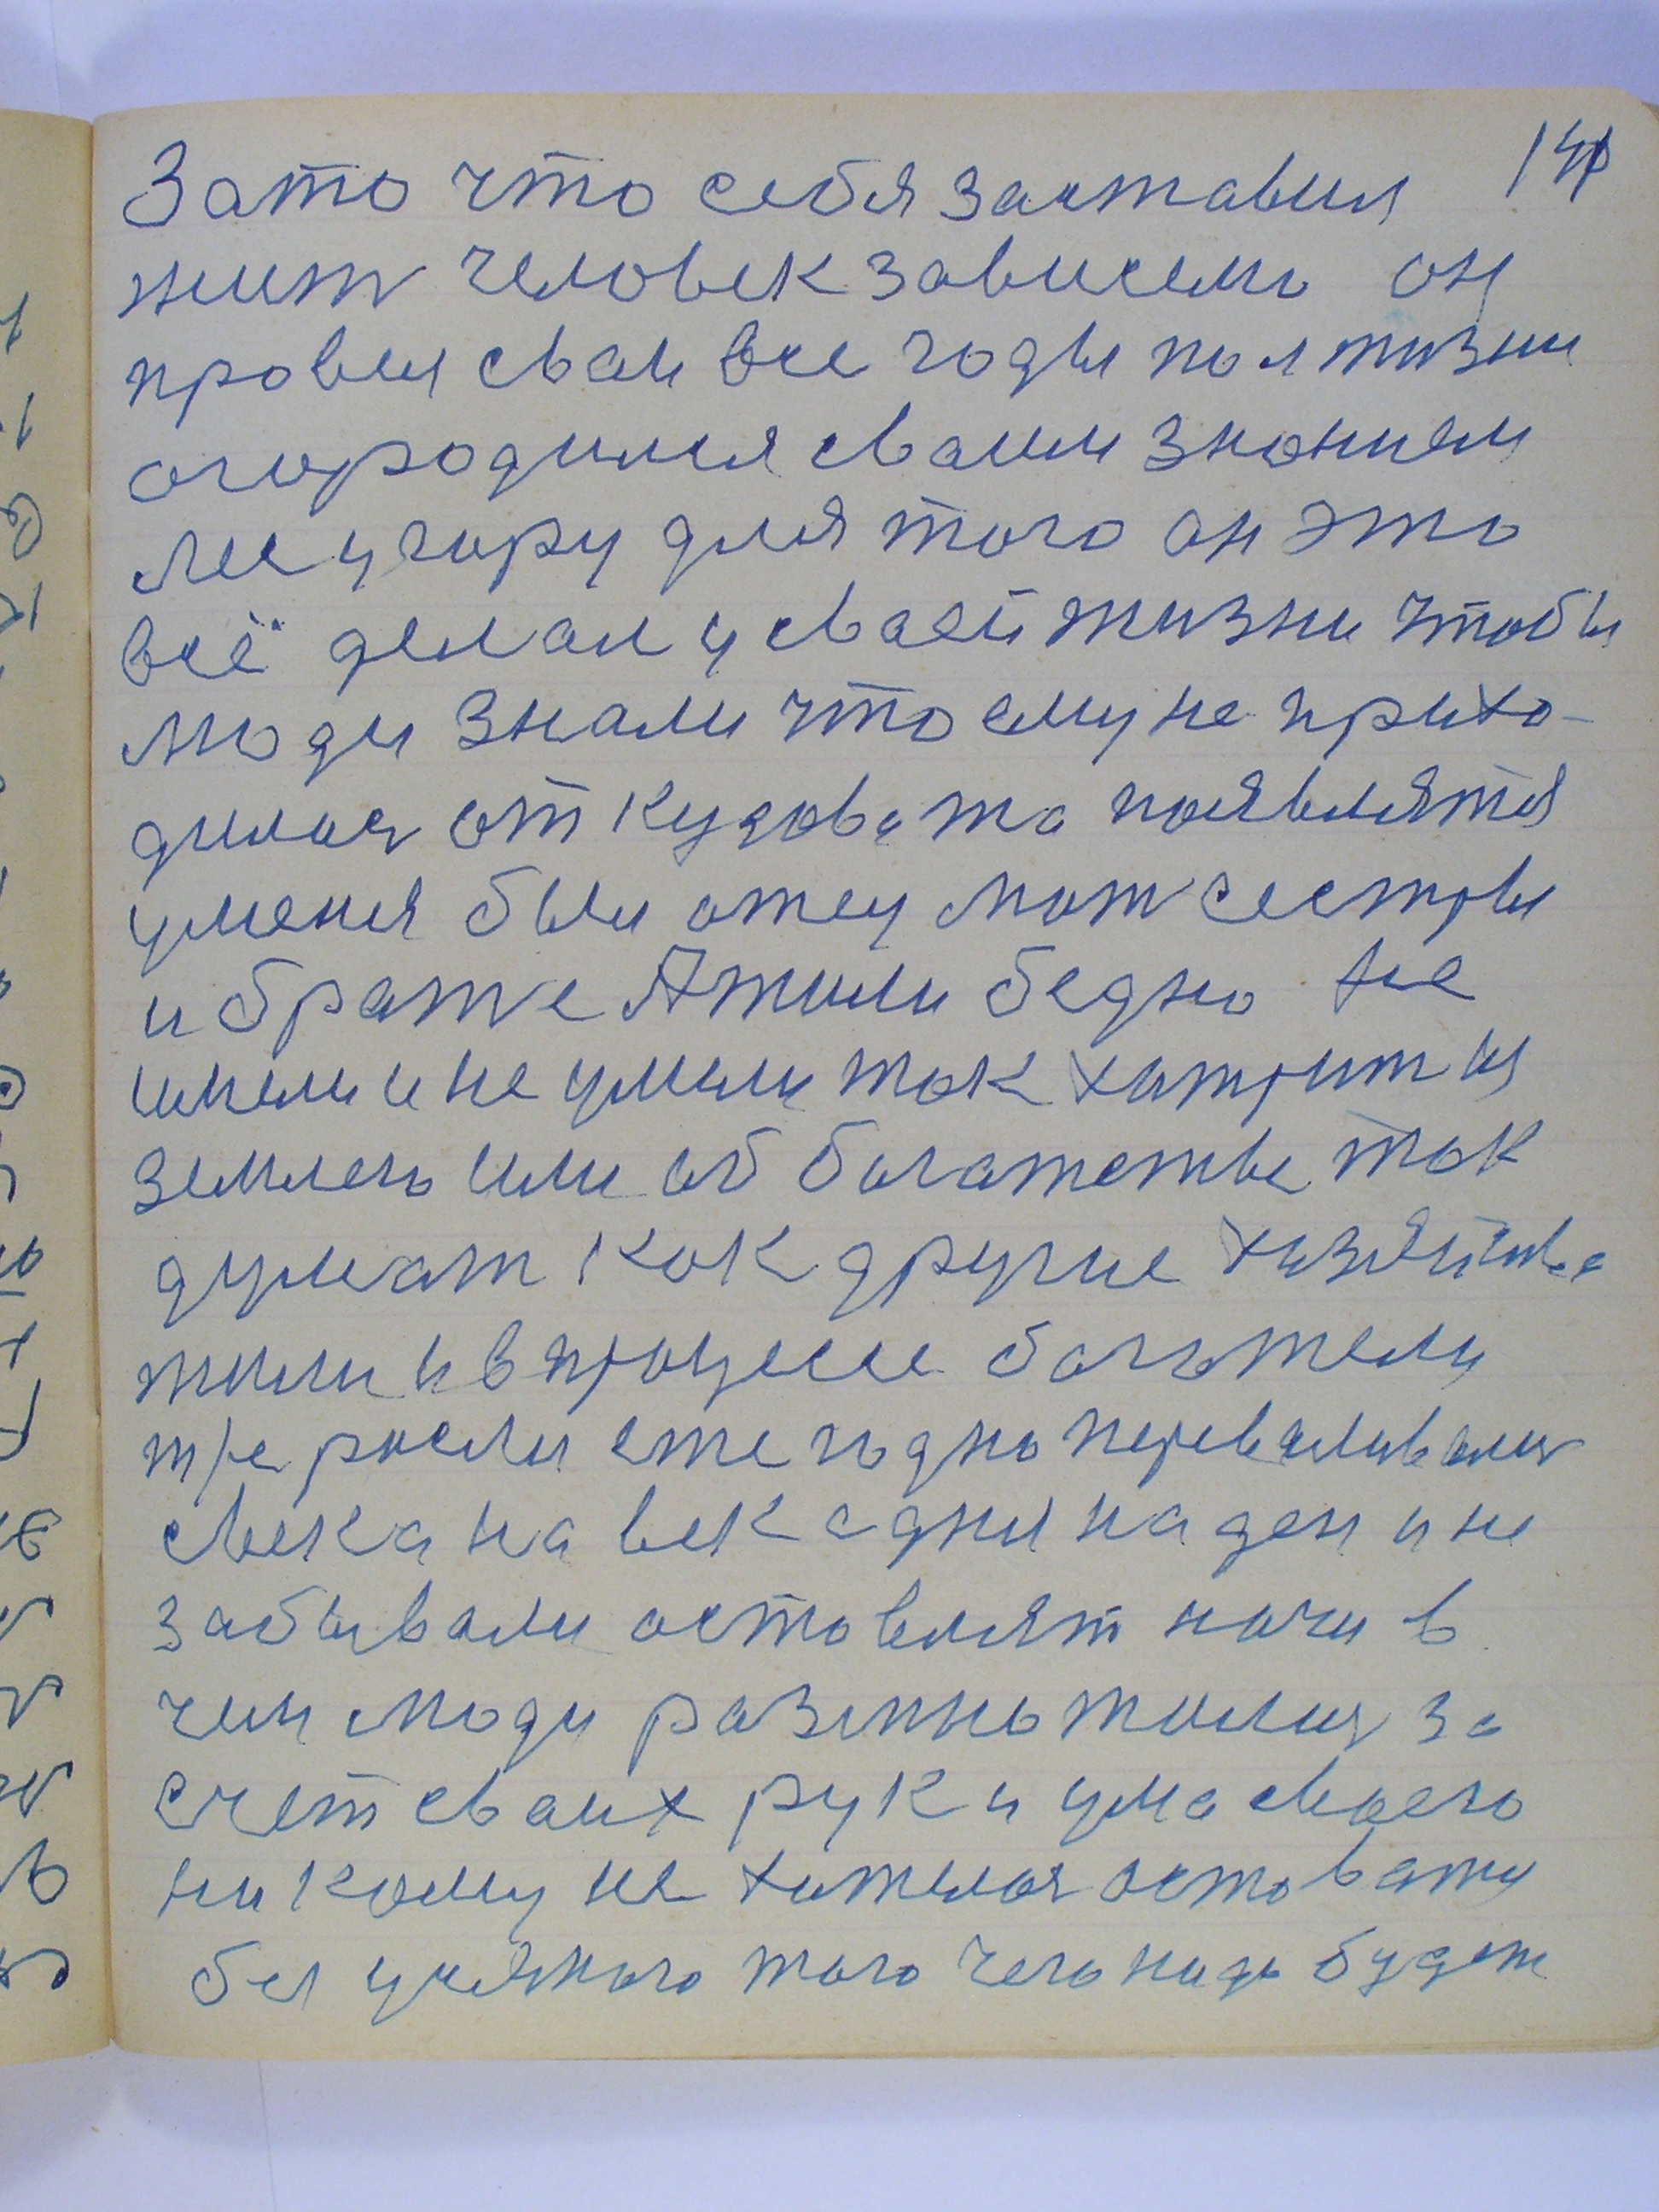 Зато что себя заставил
жит человек зависемо он
провел сваи все годы пол жизни
огородился сваим знанием
лез у гору для того он это
всё делал у сваей жизни чтобы
люди знали что ему не прихо-
дилос от кудова та появлятся
уменя были отец мат сестры
и братя Я жили бедно не
имели и не умели так хитрит из
землею или об богатстве так
думат как другие хизяйства
жили и в процессе богатели
росли ежегодно переваливалис
с века на век с дня на ден и не
забывали оставлят ночи в
чем люди размножилис за
счет сваих рук и ума своего
ни кому не хателося оставатся
без усякого того чего надо будет